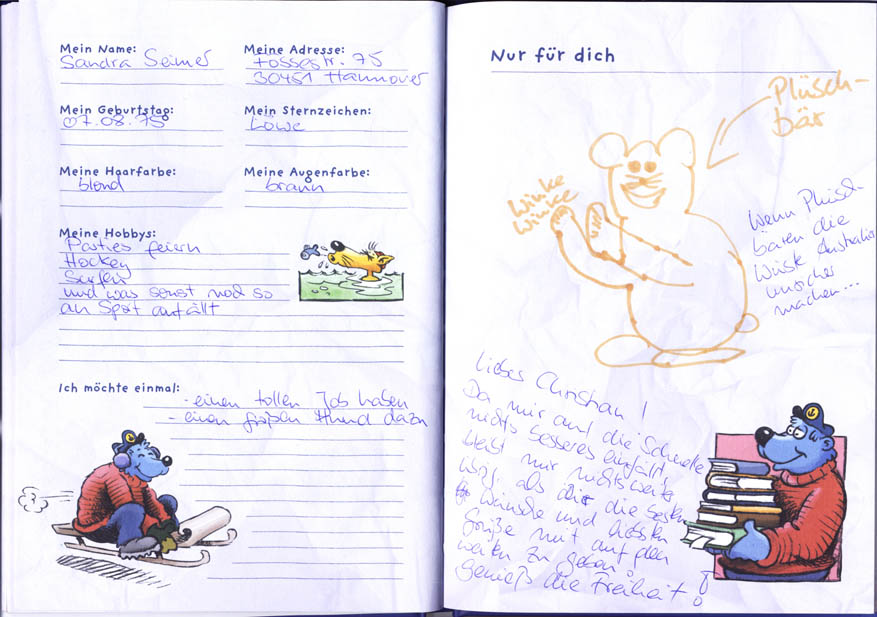 Mein Name:
Sandra Seimer
Meine Adresse:
Fössestr. 75
30451 Hannover
Mein Geburtstag:
07.08.75
Mein Sternzeichen:
Löwe
Meine Haarfarbe:
blond
Meine Augenfarbe:
braun
Meine Hobbys:
Parties feiern
Hockey
Surfen
und was sonst noch so
an Sport anfällt
Ich möchte einmal:
- einen tollen Job haben
- einen großen Hund dazu
Nur für dich
Plüsch-
bär
Winke
Winke
Wenn Plüsch-
bären die
Wüste Australia
unsicher
machen...
Liebes Christian!
Da mir auf die Schnelle
nichts besseres einfällt,
bleibt mir nichts weiter
übrig, als dir die besten
Wünsche und liebsten
Grüße mit auf den
weiten zu geben.
Genieß die Freiheit!